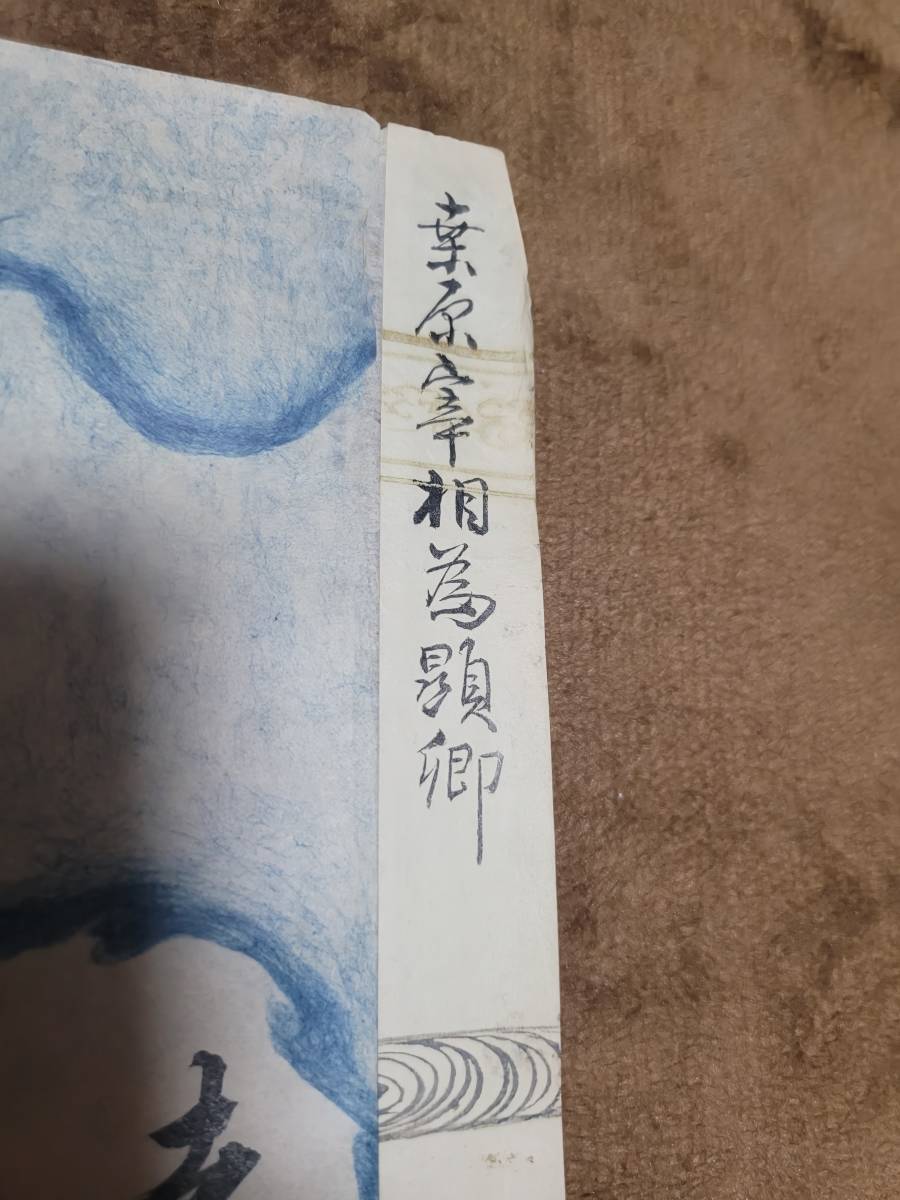 桒原宰相為顕卿